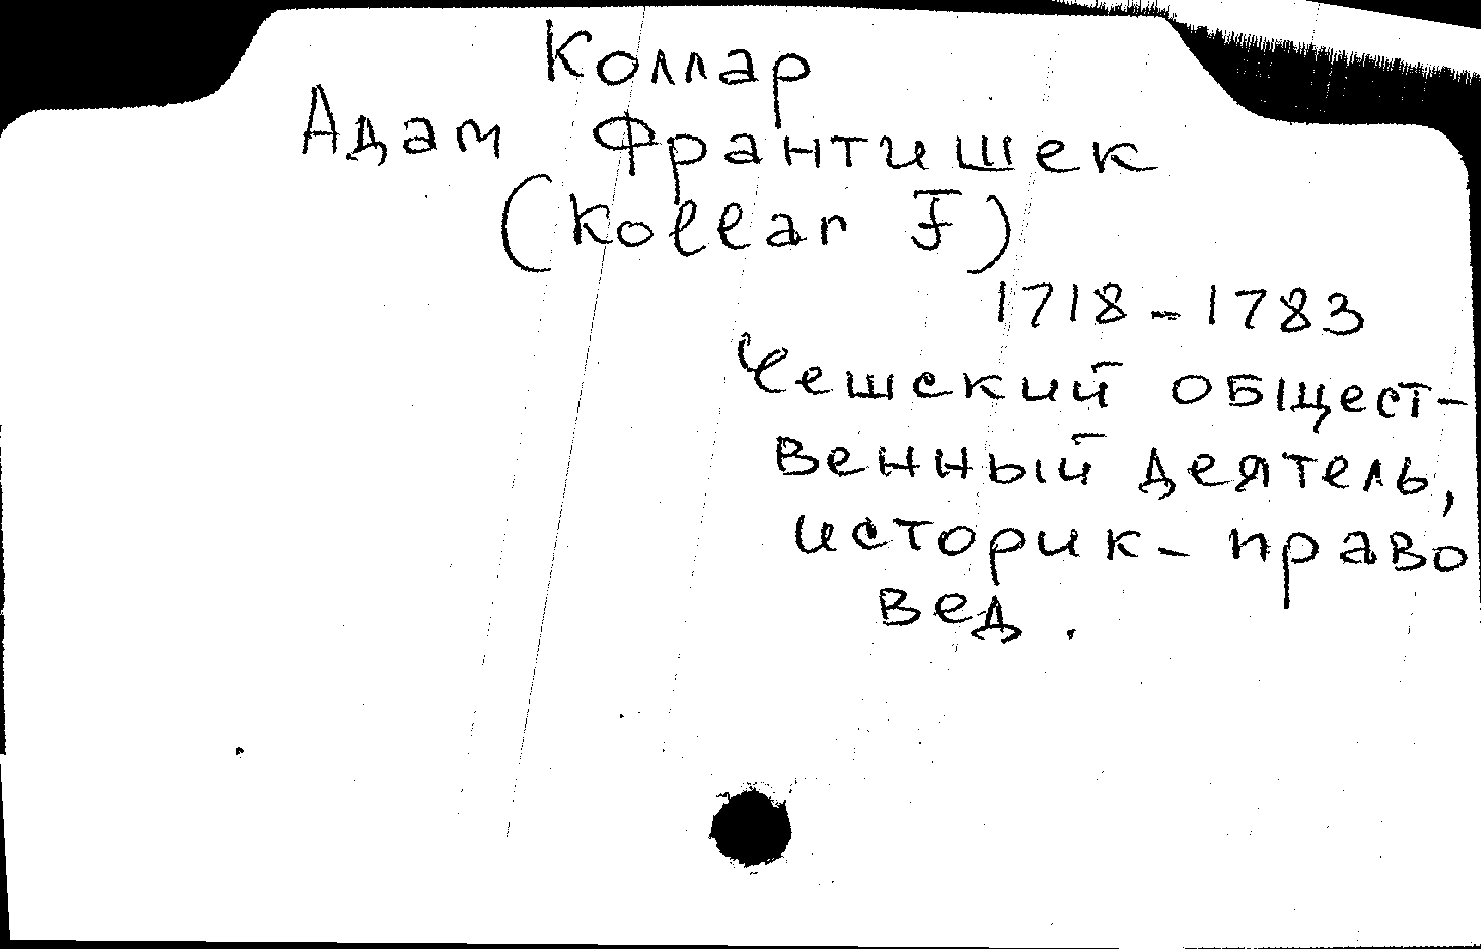 Коллар
Адам Франтишек
(Kollar F)
1718-1783
Чешский общест-
венный деятель,
историк-право
вед.